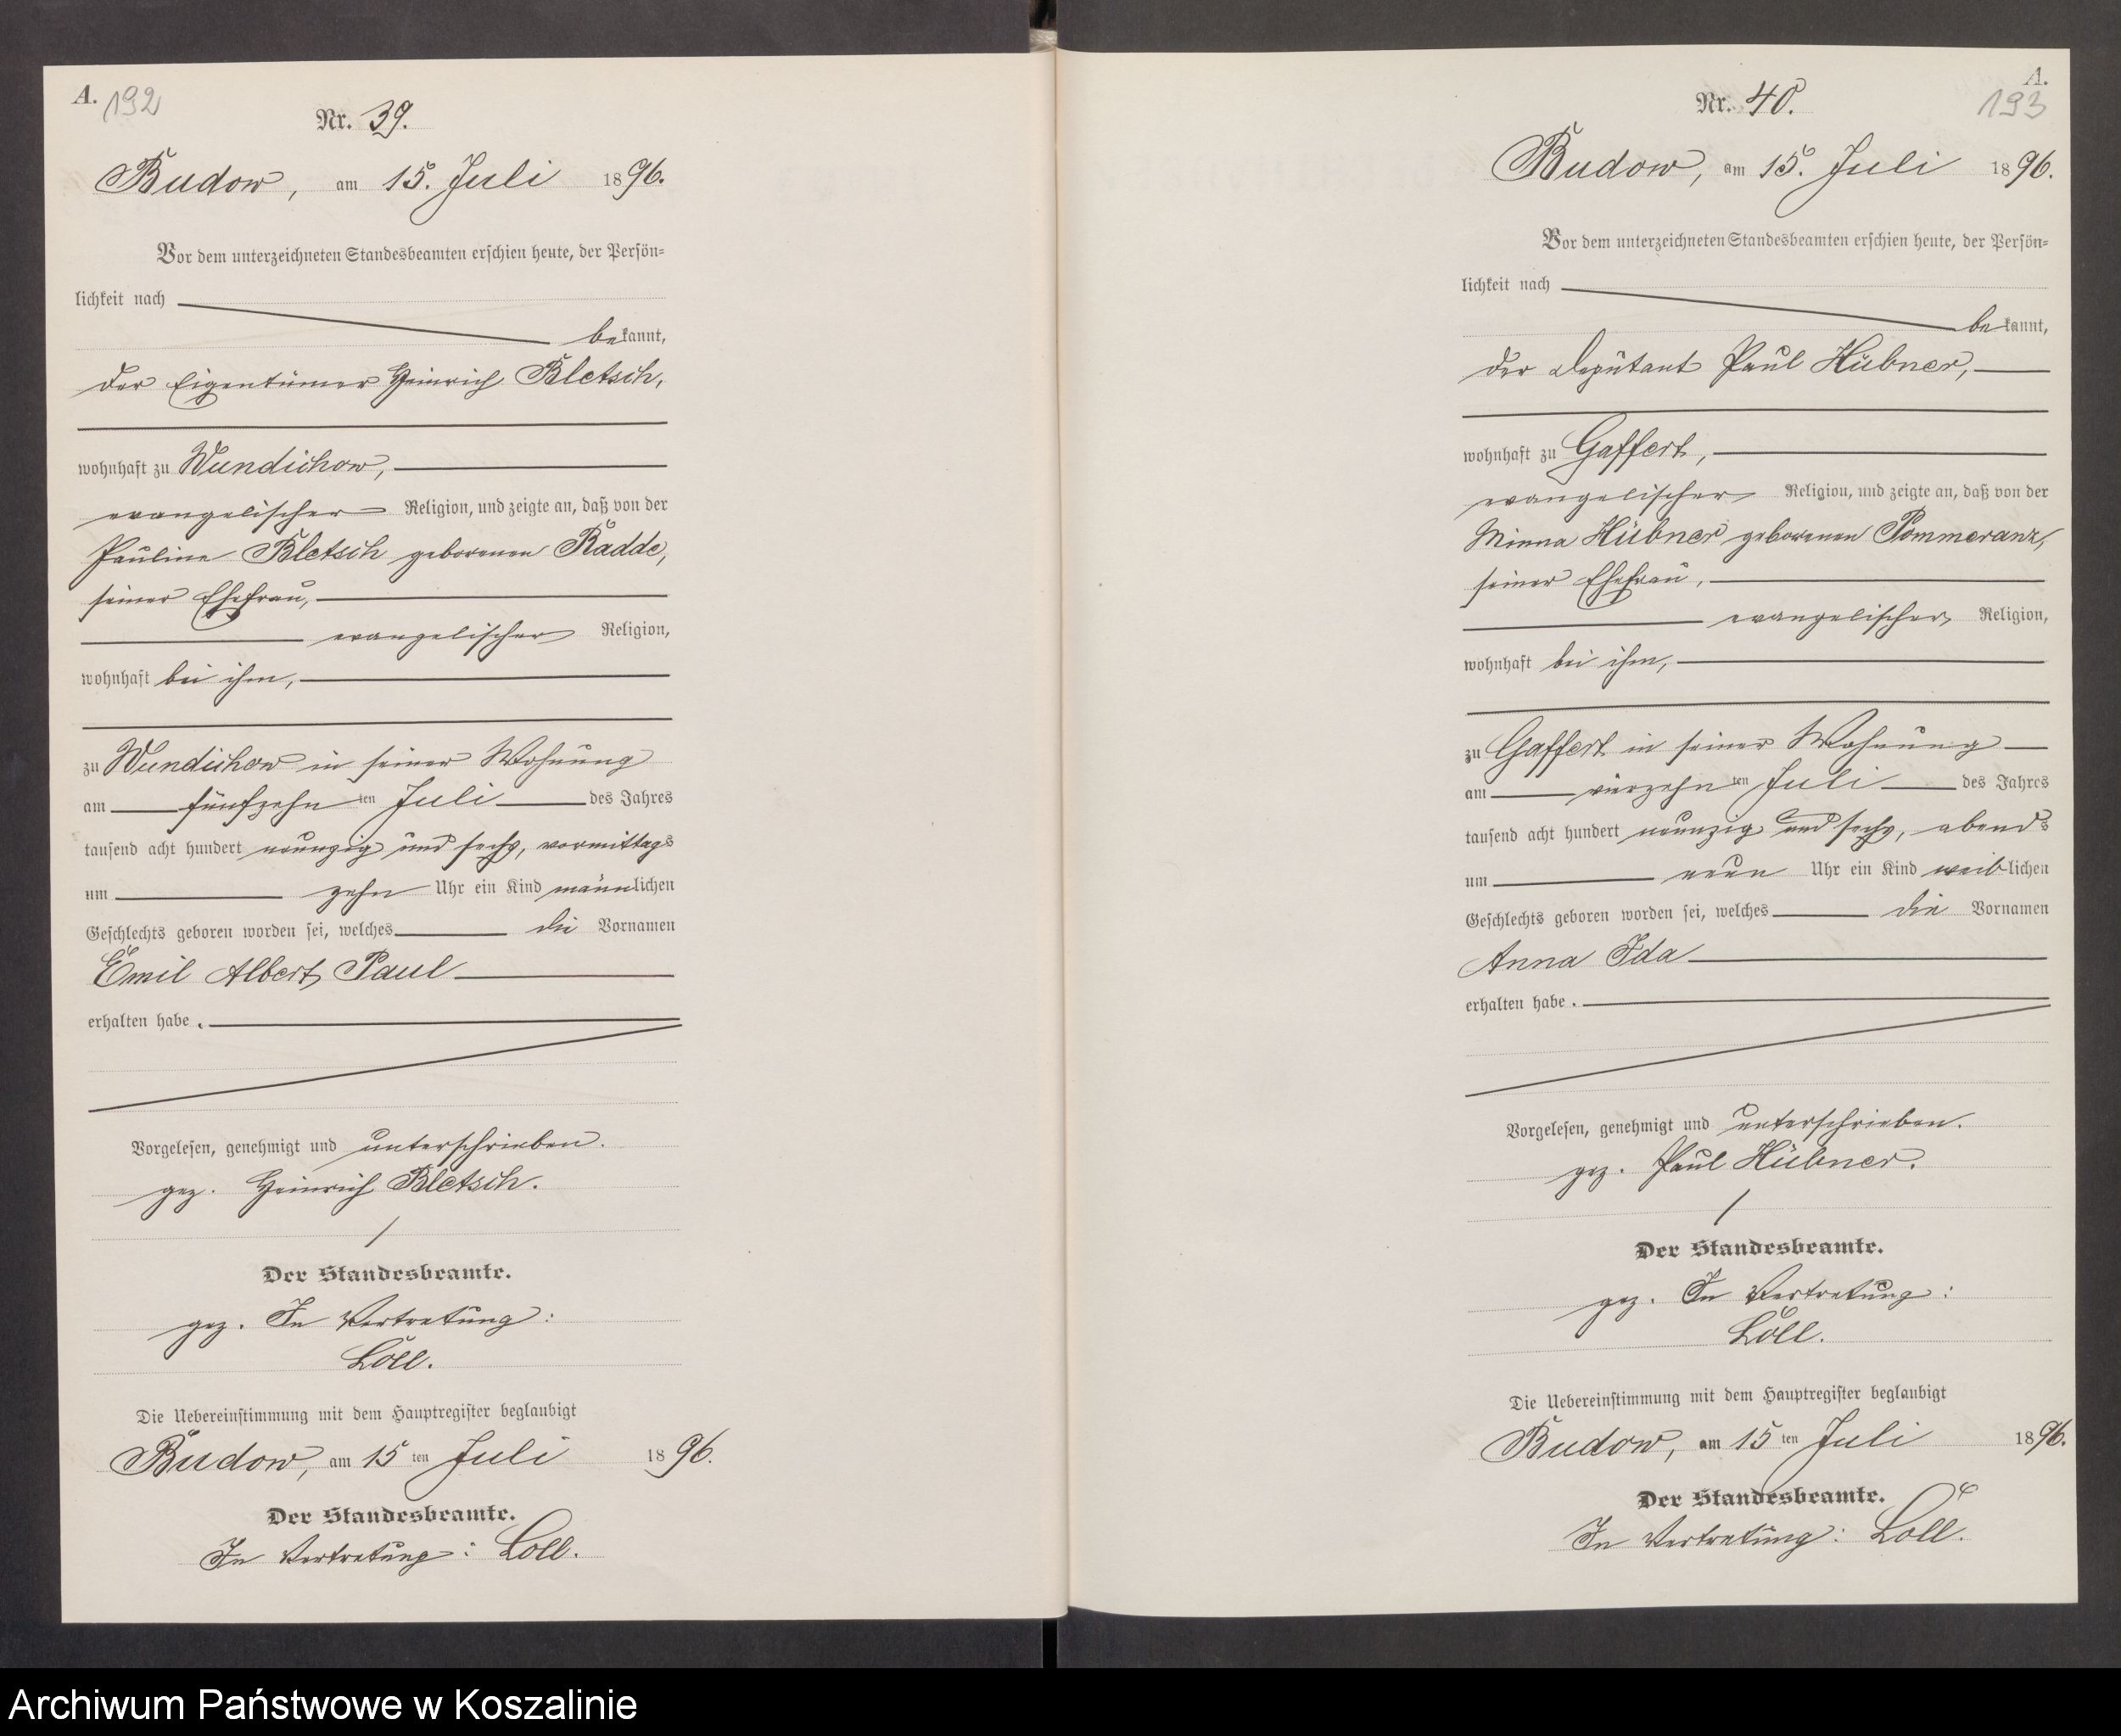 A. 192
Nr. 39.
Budow, am 15. Juli 1896.
Vor dem unterzeichneten Standesbeamten erschien heute, der Persön-
lichkeit nach
bekannt,
der Eigentümer Heinrich Bletsch,
wohnhaft zu Wundichow,
evangelischer Religion, und zeigte an, daß von der
Pauline Bletsch geborenen Radde,
seiner Ehefrau,
evangelischer Religion,
wohnhaft bei ihm,
zu Wundichow in seiner Wohnung
am fünfzehn ten Juli des Jahres
tausend acht hundert neunzig und sechs, vormittags
um zehn Uhr ein Kind männlichen
Geschlechts geboren worden sei, welches die Vornamen
Emil Albert Paul
erhalten habe.
Vorgelesen, genehmigt und unterschrieben.
gez. Heinrich Bletsch.
Der Standesbeamte.
gez. In Vertretung:
Löll.
Die Uebereinstimmung mit dem Hauptregister beglaubigt
Budow, am 15 ten Juli 1896.
Der Standesbeamte.
In Vertretung: Löll.
A.
193
Nr. 40.
Budow, am 15. Juli 1896.
Vor dem unterzeichneten Standesbeamten erschien heute, der Persön-
lichkeit nach
bekannt,
der Deputant Paul Hübner,
wohnhaft zu Gaffert,
evangelischer Religion, und zeigte an, daß von der
Minna Hübner geborenen Pommeranz,
seiner Ehefrau,
evangelischer Religion,
wohnhaft bei ihm,
zu Gaffert in seiner Wohnung
am vierzehn ten Juli des Jahres
tausend acht hundert neunzig und sechs, abends
um neun Uhr ein Kind weiblichen
Geschlechts geboren worden sei, welches die Vornamen
Anna Ida
erhalten habe.
Vorgelesen, genehmigt und unterschrieben.
gez. Paul Hübner.
Der Standesbeamte.
gez. In Vertretung:
Löll.
Die Uebereinstimmung mit dem Hauptregister beglaubigt
Budow, am 15 ten Juli 1896.
Der Standesbeamte.
In Vertretung: Löll.
Archiwum Państwowe w Koszalinie